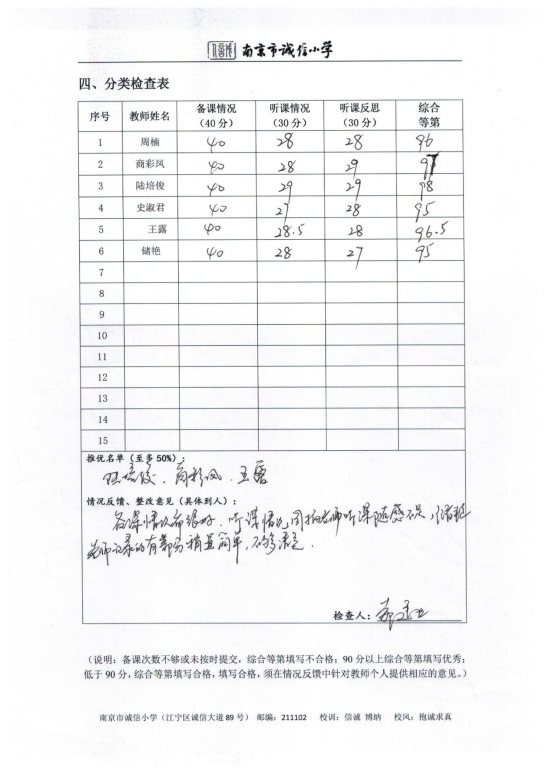 南京市诚信小学
四、分类检查表
序号 教师姓名 备课情况（40分） 听课情况（30分） 听课反思（30分） 综合等第
1 周楠 40 28 28 96
2 商彩凤 40 28 29 97
3 陆培俊 40 29 29 98
4 史淑君 40 27 28 95
5 王露 40 28.5 28 96.5
6 储艳 40 28 27 95
7
8
9
10
11
12
13
14
15
推优名单（至多50%）：
陆培俊、商彩凤、王露
情况反馈、整改意见（具体到人）：
备课情况都很好。听课情况，周楠老师听课随感不足，储艳
老师记录的有部分稍显简单，不够清楚.
检查人：
（说明：备课次数不够或未按时提交，综合等第填写不合格；90分以上综合等第填写优秀；
低于90分，综合等第填写合格，填写合格，须在情况反馈中针对教师个人提供相应的意见。）
南京市诚信小学（江宁区诚信大道89号） 邮编：211102 校训：信诚 博纳 校风：抱诚求真